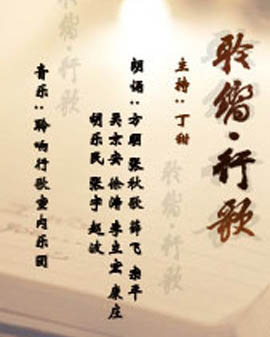 聆嚮·行歌
主持:丁甜
朗诵:方明 张秋歌 薛飞 宋平
吴京安 徐涛 李立宏 康庄
胡乐民 张宇 赵波
音乐:聆响行歌室内乐团
聆嚮·行歌
聆嚮·行歌